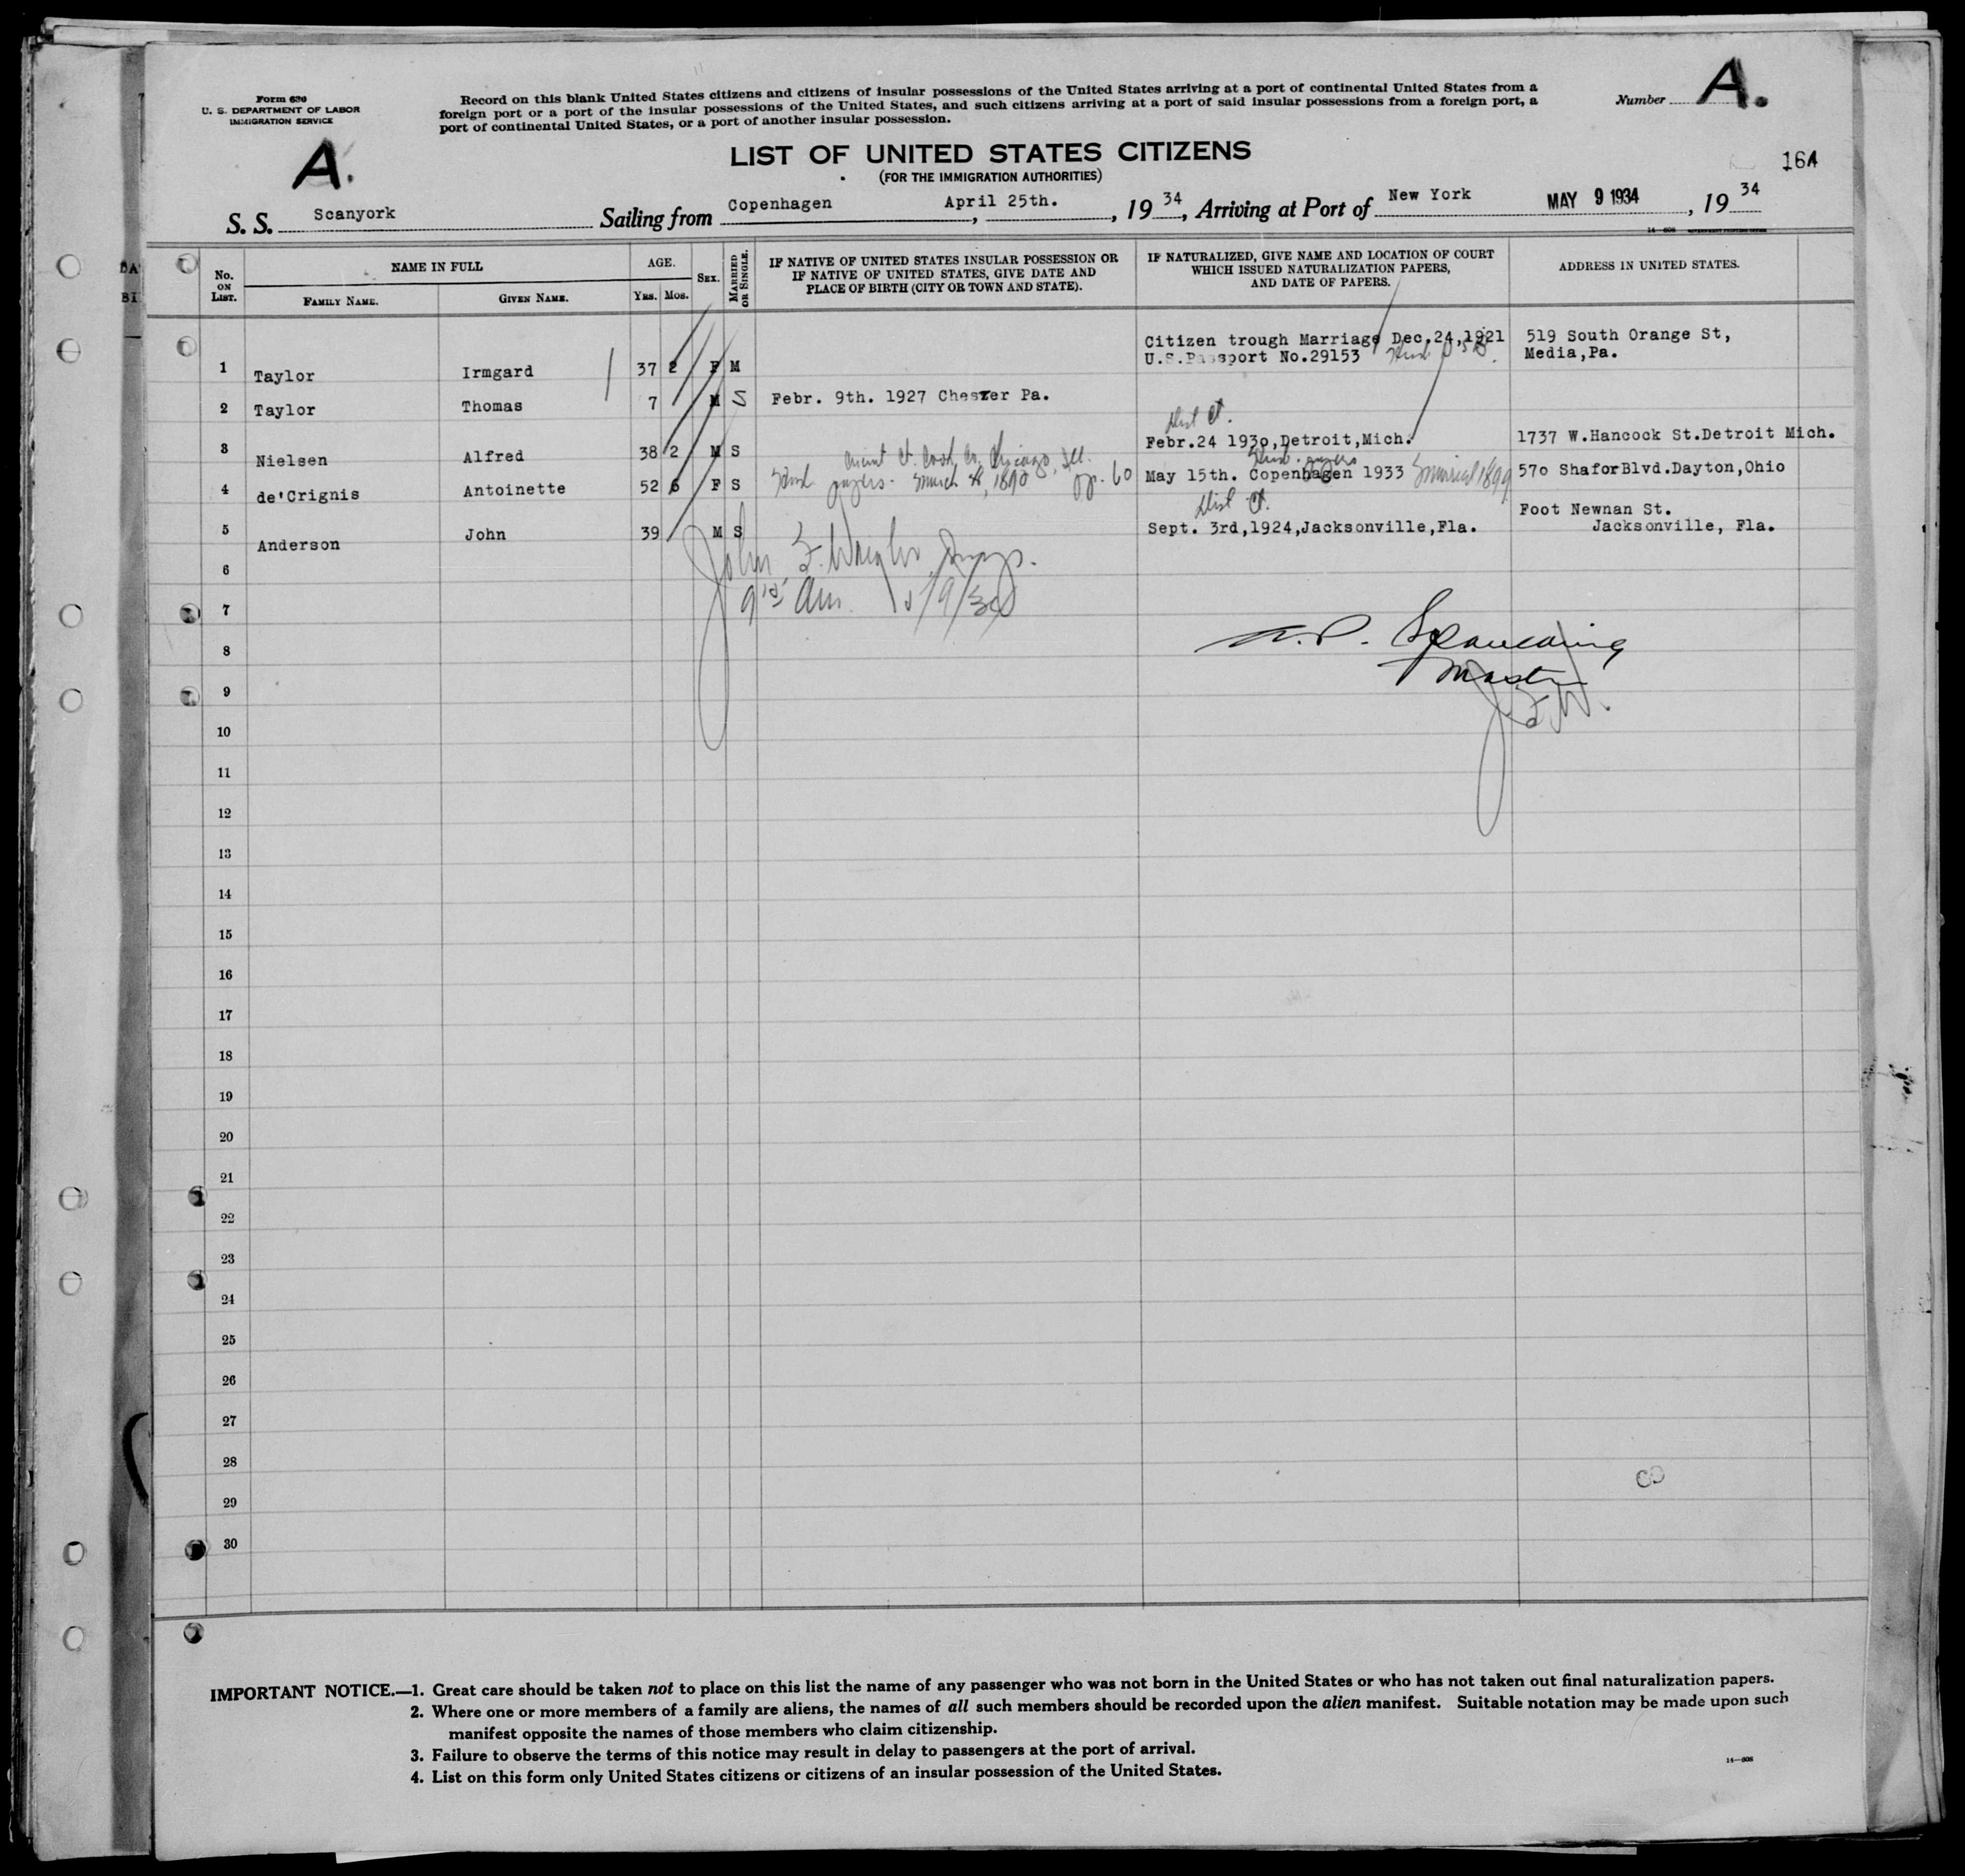 Form 630
U. S. DEPARTMENT OF LABOR
IMMIGRATION SERVICE
Record on this blank United States citizens and citizens of insular possessions of the United States arriving at a port of continental United States from a
foreign port or a port of the insular possessions of the United States, and such citizens arriving at a port of said insular possessions from a foreign port, a
port of continental United States, or a port of another insular possession.
Number A.
A.
LIST OF UNITED STATES CITIZENS
(FOR THE IMMIGRATION AUTHORITIES)
164
S. S. Scanyork Sailing from Copenhagen, April 25th., 1934, Arriving at Port of New York MAY 9 1934, 1934
No. ON LIST. NAME IN FULL AGE. SEX. MARRIED OR SINGLE. IF NATIVE OF UNITED STATES INSULAR POSSESSION OR IF NATIVE OF UNITED STATES, GIVE DATE AND PLACE OF BIRTH (CITY OR TOWN AND STATE). IF NATURALIZED, GIVE NAME AND LOCATION OF COURT WHICH ISSUED NATURALIZATION PAPERS, AND DATE OF PAPERS. ADDRESS IN UNITED STATES.
FAMILY NAME. GIVEN NAME. YRS. MOS.
Citizen trough Marriage Dec.24,1921 519 South Orange St,
1 Taylor Irmgard 37 2 F M U.S.Passport No.29153 Media,Pa.
2 Taylor Thomas 7 M S Febr. 9th. 1927 Chester Pa.
Dist Ct.
3 Nielsen Alfred 38 2 M S Febr.24 1930,Detroit,Mich. 1737 W.Hancock St.Detroit Mich.
Ct. Cook Co. Chicago, Ill.
4 de'Crignis Antoinette 52 6 F S papers. March 1890 pp. 60 May 15th. Copenhagen 1933 married 1899 570 ShaforBlvd.Dayton,Ohio
Dist Ct. Foot Newnan St.
5 Anderson John 39 M S Sept. 3rd,1924,Jacksonville,Fla. Jacksonville, Fla.
John F.
6
7
8
Spaulding
Master
9
J.F.W.
10
11
12
13
14
15
16
17
18
19
20
21
22
23
24
25
26
27
28
29
30
IMPORTANT NOTICE.—1. Great care should be taken not to place on this list the name of any passenger who was not born in the United States or who has not taken out final naturalization papers.
2. Where one or more members of a family are aliens, the names of all such members should be recorded upon the alien manifest. Suitable notation may be made upon such
manifest opposite the names of those members who claim citizenship.
3. Failure to observe the terms of this notice may result in delay to passengers at the port of arrival.
4. List on this form only United States citizens or citizens of an insular possession of the United States.
14—608